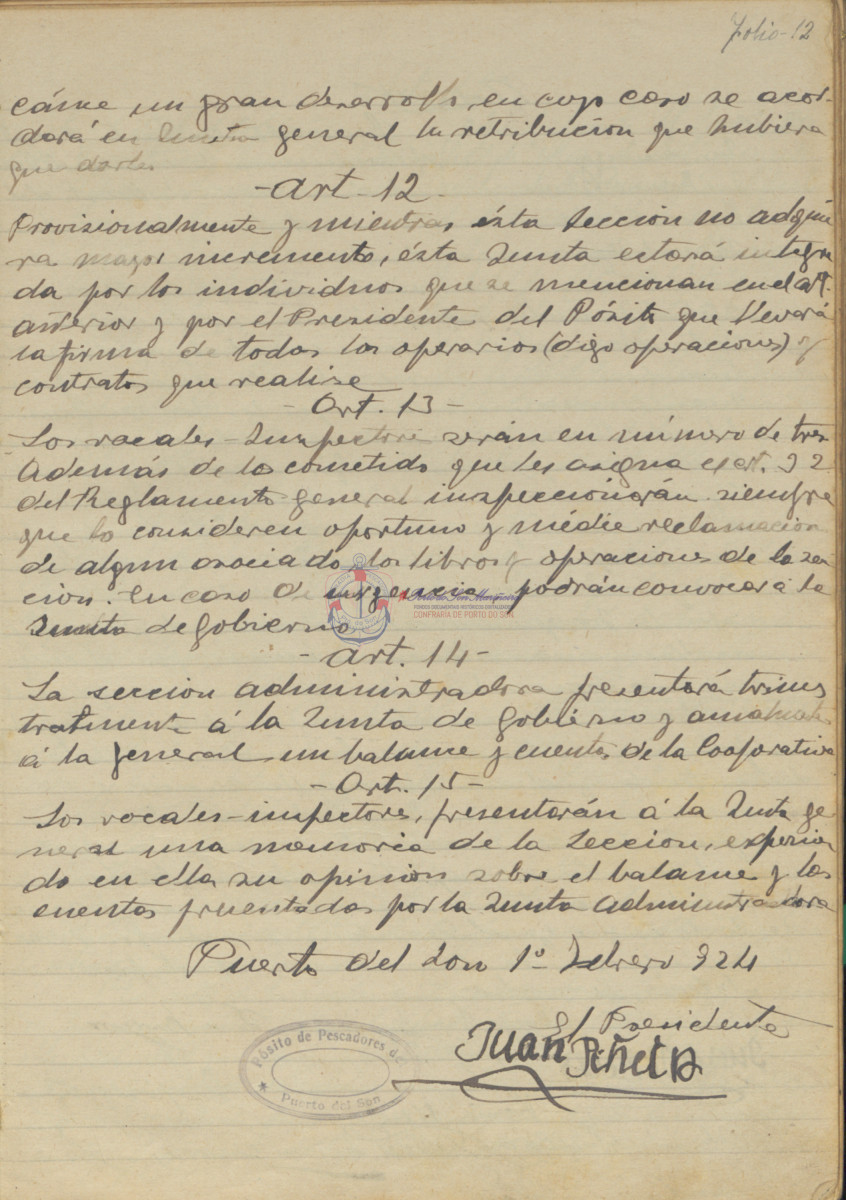 Folio-12
un gran desarrollo, en cuyo caso se acor-
dará en Junta general la retribución que hubiera
que darles
-Art-12-
Provisionalmente y mientras ésta Sección no adqui
ra mayor incremento, ésta Junta estará integra
da por los individuos que se mencionan en el art.
anterior y por el Presidente del Pósito que llevará
la firma de todas las operarios (digo operaciones) y
contratos que realise
-Art. 13-
Los vocales-Inspectores serán en número de tres
Además de lo cometido que les asigna el art. 32
del Reglamento general inspeccionarán siempre
que lo consideren oportuno y médie reclamación
de algun asociado, los libros y operaciones de la se
cion. En caso de urgencia podrán convocar á la
Junta de Gobierno
-Art. 14-
La sección administradora presentará trimes
tralmente á la Junta de Gobierno y anualmente
á la general un balance y cuentas de la Cooperativa
-Art. 15-
Los vocales-inspectores, presentarán á la Junta ge
neral una memoria de la Sección, exponien
do en ella su opinión sobre el balance y las
cuentas presentadas por la Junta Administradora
Puerto del Son 1º Febrero 924
El Presidente
Juan
Pósito de Pescadores de
Puerto del Son
FONDOS DOCUMENTAIS HISTÓRICOS DIXITALIZADOS
CONFRARÍA DE PORTO DO SON